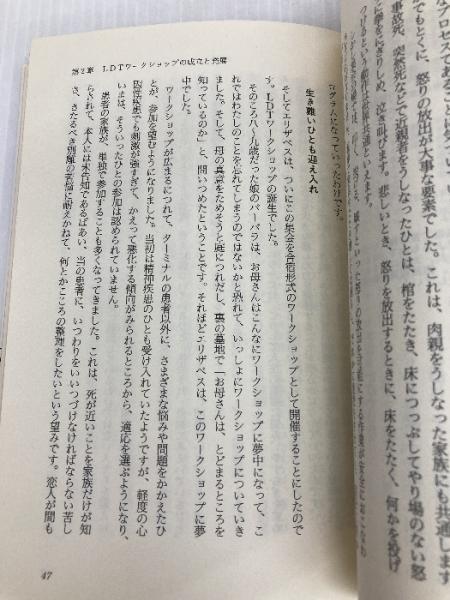 なプロセスであることに
でもとくに、怒りの放出が大事な要素でした。これは、肉親をうしなった家族にも共通します
事故死、突然死などで近親者をうしなったひとは、棺をたたき、床につっぷしてやり場のない怒
に拳をにぎりしめ、泣き叫びます。悲しいとき、怒りを放出するときに、床をたたく、何かを投げ
つけるという動作は世界共通といえます。
生き難いひとも迎え入れ
そしてエリザベスは、ついにこの集会を合宿形式のワークショップとして開催することにしたので
す。LDTワークショップの誕生でした。
そのころ八〜九歳だった娘のバーバラは、お母さんはこんなにワークショップに夢中になって、こ
れではわたしのことを忘れてしまうのではないかと恐れて、いっしょにワークショップについていき
ました。そして、母の真意をためそうと庭につれだし、裏の墓地で「お母さんは、とどまるところを
知っているのか」と、問いつめたということです。それほどエリザベスは、このワークショップに夢
ワークショップが広まるにつれて、ターミナルの患者以外に、さまざまな悩みや問題をかかえたひ
とが、参加を望むようになりました。当初は精神疾患のひとも受け入れていたようですが、軽度の心
因性疾患でも刺激が強すぎて、かえって悪化する傾向がみられるところから、適応を選ぶようになり、
いまは、そういったひとの参加は認められていません。
患者の家族が、単独で参加することも多くなってきました。これは、死が近いことを家族だけが知
らされて、本人には未告知であるばあい、当の患者に、いつわりをいいつづけなければならない苦し
さ、きたるべき別離の苦悩に耐えかねて、何とかこころの整理をしたいという望みです。恋人が間も
第2章 LDTワークショップの成立と発展
47